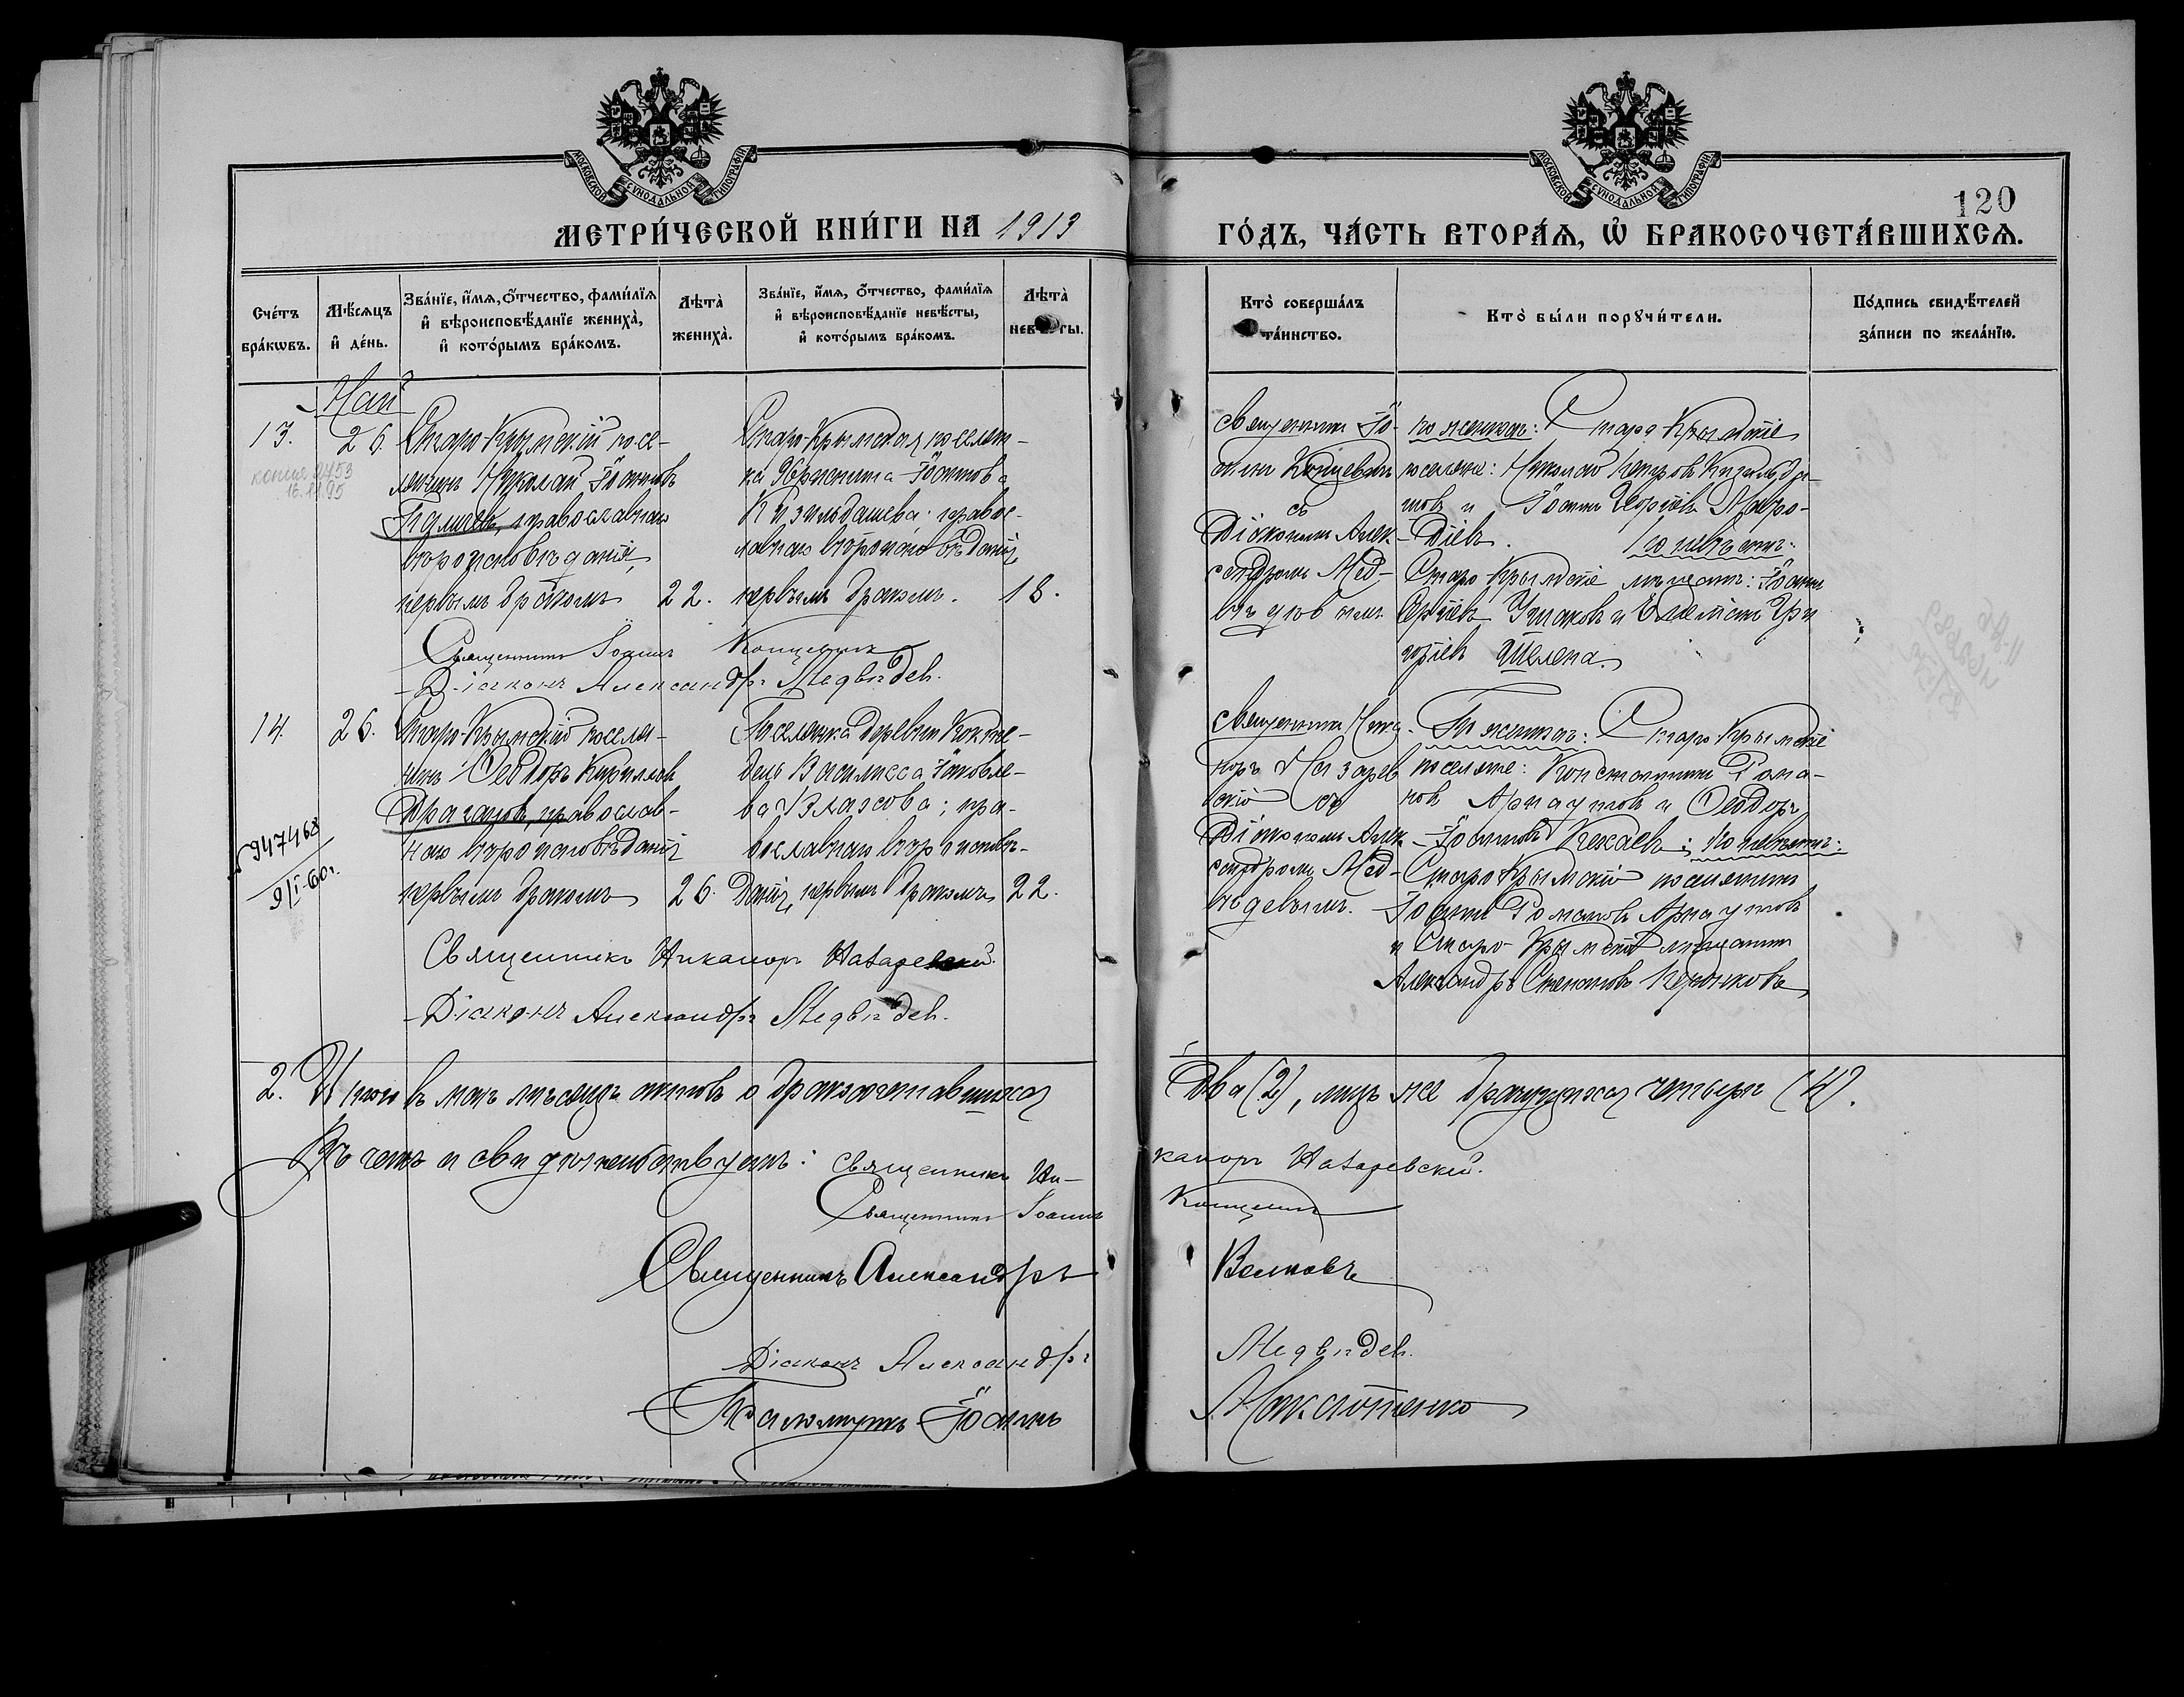 МОСКОВСКОЙ СѴНОДАЛЬНОЙ ТИПОГРАФІИ
МЕТРИ́ЧЕСКОЙ КНИ́ГИ НА 1913
Сче́тъ бра́кѡвъ.
Мѣ́сяцъ и҆ де́нь.
Зва́нїе, и҆́мѧ, ѻ҆́тчество, фами́лїѧ и҆ вѣроисповѣ́данїе жениха̀, и҆ кото́рымъ бра́комъ.
Лѣта̀ жениха̀.
Зва́нїе, и҆́мѧ, ѻ҆́тчество, фами́лїѧ и҆ вѣроисповѣ́данїе невѣ́сты, и҆ кото́рымъ бра́комъ.
Лѣта̀ невѣ́сты.
Май
13.
копия 2453
16.11.95
26.
Старо-Крымскій посе-
лянинъ Николай Іоанновъ
православнаго
вѣроисповѣданія,
первымъ бракомъ
22.
Старо-Крымская поселян-
ка Іоаннова
Кизильдашева; правос-
лавнаго вѣроисповѣданія,
первымъ бракомъ.
18.
Священникъ Іоаннъ Концевичъ
Діаконъ Александръ Медвѣдевъ.
14.
947468
9/I-60г.
26.
Старо-Крымскій поселя-
нинъ Ѳеодоръ Кириллов
Драгановъ, православ-
наго вѣроисповѣданія
первымъ бракомъ
26.
Поселянка деревни Коктебель
Василисса Іаковле-
ва Власова; пра-
вославнаго вѣроисповѣ-
данія, первымъ бракомъ
22.
Священникъ Никаноръ Назаревскій.
Діаконъ Александръ Медвѣдевъ.
2. Итого въ маѣ мѣсяцѣ актовъ о бракосочетавшихся
Въ чемъ и свидѣтельствуемъ: Священникъ Ни-
Священникъ Іоаннъ
Священникъ Александръ
Діаконъ Александръ
Псаломщикъ Іоаннъ
МОСКОВСКОЙ СѴНОДАЛЬНОЙ ТИПОГРАФІИ
120
ГО́ДЪ, ЧА́СТЬ ВТОРА́Ѧ, Ѡ҆ БРАКОСОЧЕТА́ВШИХСѦ.
Кто̀ соверша́лъ та́инство.
Кто̀ бы́ли порꙋчи́тели.
По́дпись свидѣ́телей за́писи по жела́нїю.
Священникъ Іо-
аннъ Концевичъ
съ
Діакономъ Алек-
сандромъ Мед-
вѣдевымъ.
по женихѣ: Старо-Крымскіе
поселяне: Николай Петровъ Кизильда-
шовъ и Іоаннъ Георгіевъ Мавро-
діевъ. По невѣстѣ:
Старо-Крымскіе мѣщане: Іоаннъ
Сергіевъ Ушаковъ и Гри
горіевъ
Священникъ Ника-
норъ Назарев
скій съ
Діакономъ Алек-
сандромъ Мед-
вѣдевымъ.
По женихѣ: Старо-Крымскіе
поселяне: Константинъ Рома-
новъ Арнаутовъ и Ѳеодоръ
Іоанновъ Кежаевъ; по невѣстѣ:
Старо-Крымскій поселянинъ
Іоаннъ Романовъ Арнаутовъ
и Старо-Крымскій мѣщанинъ
Александръ Степановъ
Два (2), лицъ же брачущихся четыре (4).
каноръ Назаревскій.
Концевичъ
Волковъ
Медвѣдевъ.